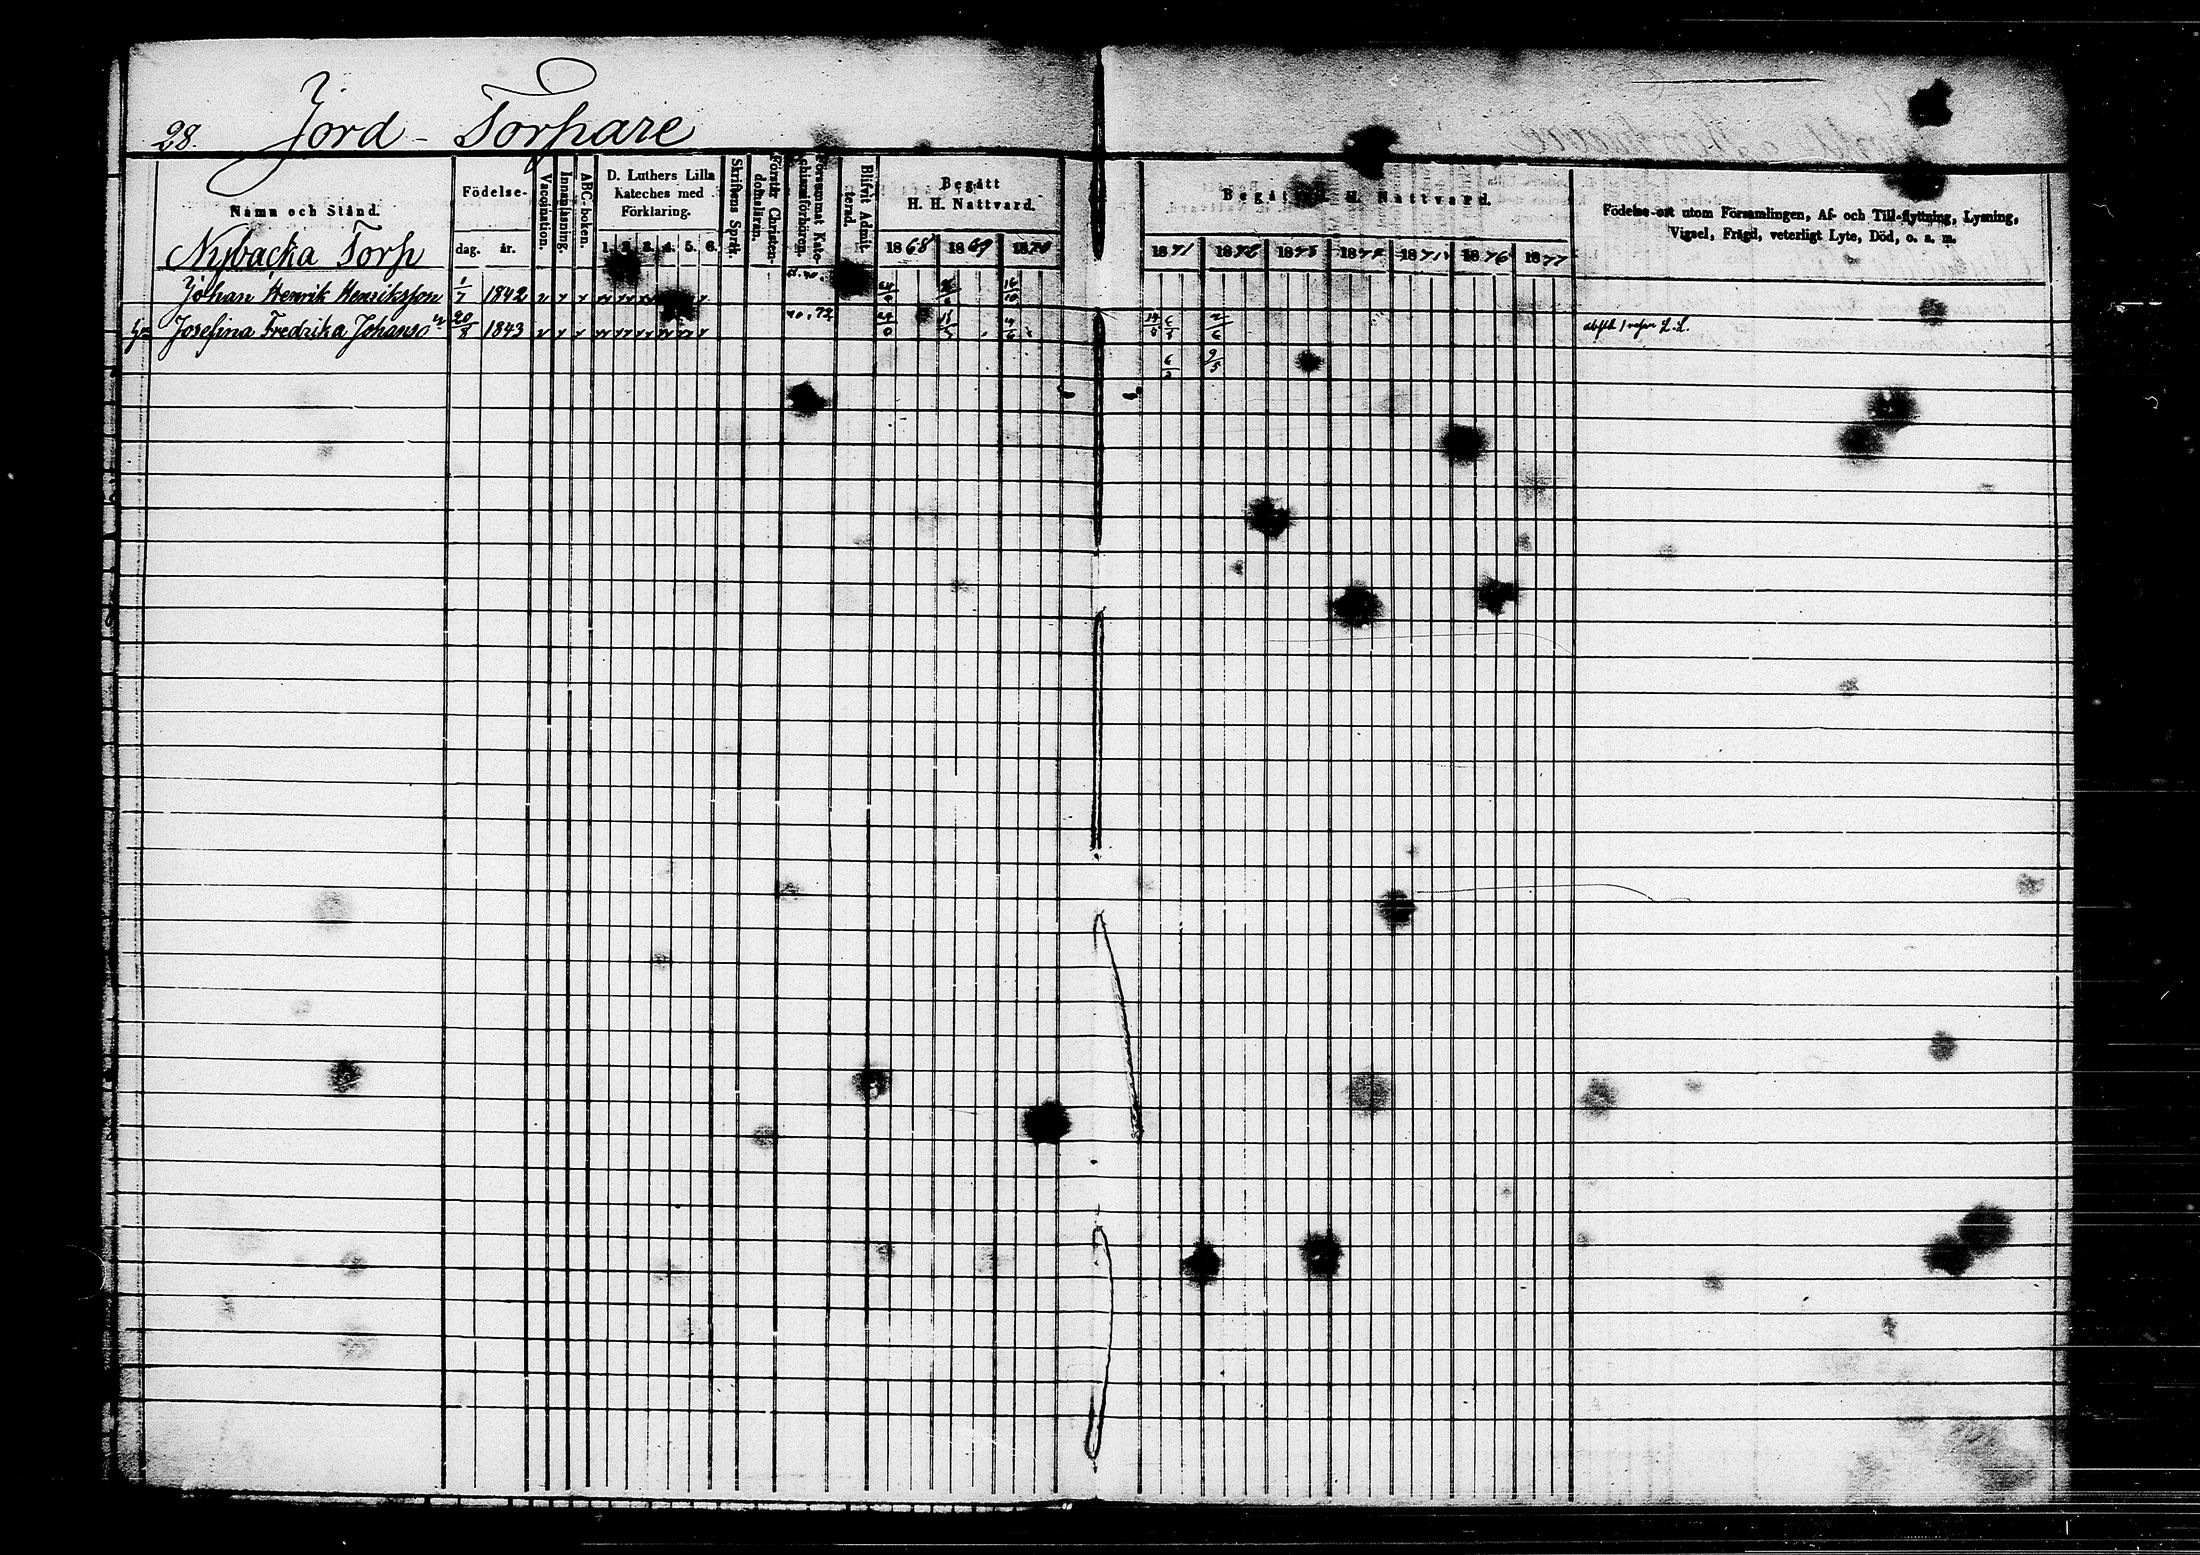 28. Jord-Torpare
Namn och Stånd.
Födelse-
dag. år.
Vaccination.
Innanläsning.
ABC-boken.
D. Luthers Lilla
Kateches med
Förklaring.
1. 2. 3. 4. 5. 6.
Skriftens Språk.
Förstår Christen-
domsläran.
Försummat Kate-
chismiförhören.
Blifvit Admit-
terad.
Begått
H. H. Nattvard.
1868 1869 1870
Begått H. H. Nattvard.
1871 1872 1873 1874 1875 1876 1877
Födelse-ort utom Församlingen, Af- och Till-flyttning, Lysning,
Vigsel, Frägd, veterligt Lyte, Död, o. s. m.
Nybacka Torp
Johan Henrik Henriksson 1/7 1842
Josefina Fredrika Johansdr 20/8 1843 70, 72
6 9/5